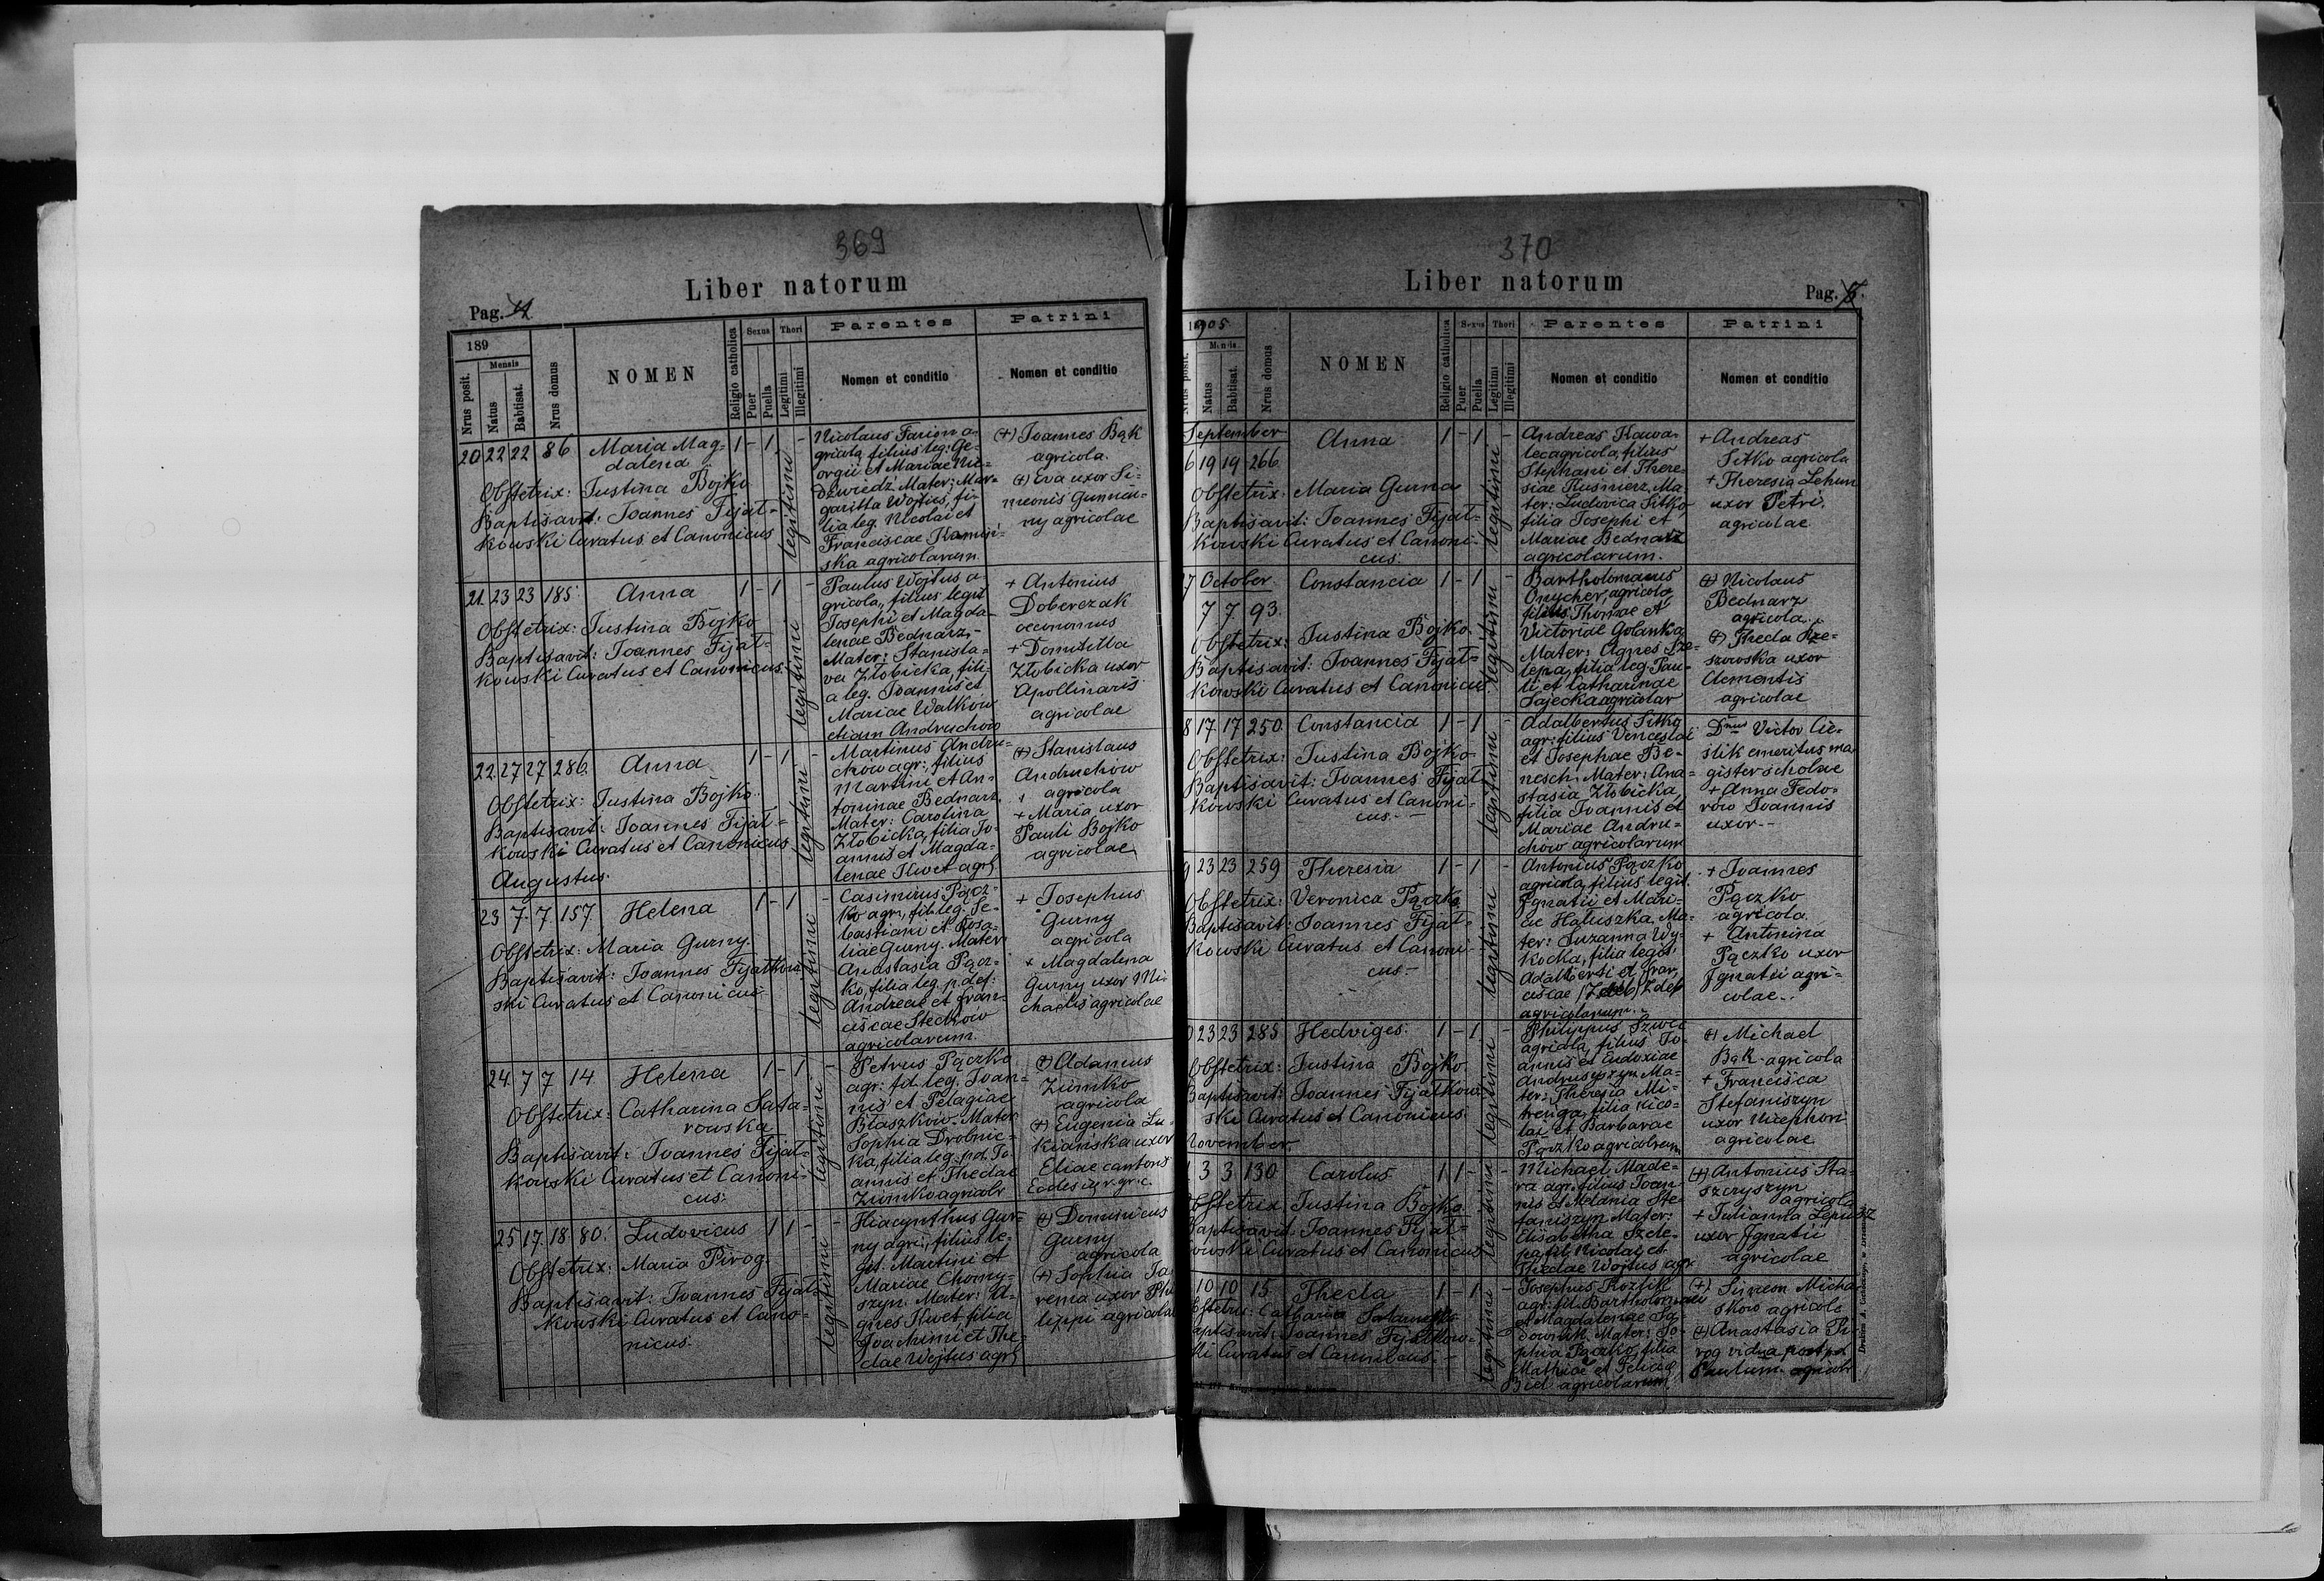 369
Liber natorum
Pag. 4
189
Nrus posit.
Mensis
Natus
Babtisat.
Nrus domus
NOMEN
Religio catholica
Sexus
Puer
Puella
Thori
Legitimi
Illegitimi
Parentes
Nomen et conditio
Patrini
Nomen et conditio
20 22 22 86 Maria Mag=
dalena
1 - 1 -
legitimi
Obstetrix: Justina Bojko
Baptisavit: Joannes Fijał=
kowski Curatus et Canonicus
Nicolaus Farion a=
gricola, filius leg: Ge=
orgii et Mariae Nie=
dzwiedz Mater: Mar=
garitta Wojtus, fi=
lia leg. Nicolai et
Franciscae Kamin=
ska agricolarum.
(+) Joannes Bąk
agricola.
(+) Eva uxor Si=
meonis
agricolae
21. 23 23 185 Anna
1 - 1 -
legitimi
Obstetrix: Justina Bojko
Baptisavit: Joannes Fijał=
kowski Curatus et Canonicus.
Paulus Wojtus a=
gricola, filius legit
Josephi et Magda=
lenae Bednarz,-
Mater: Stanisla=
va Złobicka, fili=
a leg. Joannis et
Mariae Walkow
etiam Andruchow
+ Antonius
Doberczak
oeconomus
+ Domitilla
Złobicka uxor
Apollinaris
agricolae
22. 27 27 286. Anna
1 - 1 -
legitimi
Obstetrix: Justina Bojko.
Baptisavit: Joannes Fijał=
kowski Curatus et Canonicus
Martinus Andru=
chow agr:, filius
Martini et An=
toninae Bednarz.
Mater: Carolina
Złobicka, filia Jo=
annis et Magda=
lenae Kwet agr
(+) Stanislaus
Andruchow
agricola
+ Maria uxor
Pauli Bojko
agricolae
Augustus.
23 7. 7 157 Helena
1 - 1 -
legitimi
Obstetrix: Maria Gurny.
Baptisavit: Joannes Fijałkow
ski Curatus et Canonicus
Casimirus Pącz=
ko agr., fil. leg. Se=
bastiani et Rosa=
liae Gurny. Mater:
Anastasia Pącz=
ko, filia leg. p. def.
Andreae et Fran=
ciscae Steckow
agricolarum.
+ Josephus
Gurny
agricola
+ Magdalena
Gurny uxor Mi
chaelis agricolae
24. 7 7 14 Helena
1 - 1 -
legitimi
Obstetrix: Catharina Sata=
rowska
Baptisavit: Joannes Fijał=
kowski Curatus et Canoni=
cus.
Petrus Pączko
agr: fil. leg. Joan=
nis et Pelagiae
Błaszkow. Mater
Sophia Drobnic=
ka, filia leg. pd. Jo
annis et Theclae
Zumko agricolr
(+) Adamus
Zumko
agricola
(+) Eugenia Lu=
kianska uxor
Eliae cantoris
Ecclesiae r. gr. c.
25 17. 18 80. Ludovicus
1 1 - -
legitimi
Obstetrix: Maria Pirog.
Baptisavit: Joannes Fijał=
kowski Curatus et Cano=
nicus.
Hiacynthus Gur=
ny agri:, filius le=
git. Martini et
Mariae Chorny=
szyn. Mater: A=
gnes Kwet filia
Joachimi et The=
clae Wojtus agr
(+) Dominicus
Gurny
agricola
(+) Sophia Ja
rema uxor Phi
lippi agricolae
370
Liber natorum
Pag. 5.
1905
Nrus posit.
Mensis
Natus
Babtisat.
Nrus domus
NOMEN
Religio catholica
Sexus
Puer
Puella
Thori
Legitimi
Illegitimi
Parentes
Nomen et conditio
Patrini
Nomen et conditio
September
6 19 19 266. Anna
1 - 1 -
legitimi
Obstetrix: Maria Gurna
Baptisavit: Joannes Fijał=
kowski Curatus et Canoni=
cus.
Andreas Kawa=
lec agricola, filius
Stephani et There=
siae Kusmerz, Ma=
ter: Ludovica Sitko
filia Josephi et
Mariae Bednarz
agricolarum.
+ Andreas
Sitko agricola
+ Theresia Lehun
uxor Petri.
agricolae
7 October
7 7. 93. Constancia
1 - 1 -
legitimi
Obstetrix: Justina Bojko.
Baptisavit: Joannes Fijał=
kowski Curatus et Canonicus
Bartholomaeus
Onycher, agricola
filius Thomae et
Victoriae Golanka
Mater: Agnes Sze=
lepa, filia leg: Pau=
li et Catharinae
Sajecka agricolar
(+) Nicolaus
Bednarz
agricola.
(+) Thecla Rze=
szowska uxor
Clementis
agricolae
8 17 17 250. Constancia
1 - 1 -
legitimi
Obstetrix: Justina Bojko
Baptisavit: Joannes Fijał=
kowski Curatus et Canoni=
cus. -
Adalbertus Sitko
agr: filius Venceslai
et Josephae Be=
nesch. Mater: Ana=
stasia Złobicka,
filia Joannis et
Mariae Andru=
chow agricolarum
Dnus Victor Cie=
slik emeritus ma
gister scholae
+ Anna Fedo=
row Joannis
uxor.-
9 23 23 259 Theresia
1 - 1 -
legitimi
Obstetrix: Veronica Pączko
Baptisavit: Joannes Fijał=
kowski Curatus et Canoni=
cus -
Antonius Pączko
agricola, filius legit.
Ignatii et Mari=
ae Haluszka, Ma=
ter: Suzanna Wy=
socka, filia legit.
Adalberti et Fran
ciscae
agricolarum.
+ Joannes
Pączko
agricola.
+ Antonina
Pączko uxor
Ignatii agri=
colae.
0 23 23 285 Hedviges.
1 - 1 -
legitimi
Obstetrix: Justina Bojko
Baptisavit: Joannes Fijałkow
ski Curatus et Canonicus.
Philippus Szwec
agricola, filius Jo=
annis et Eudoxiae
Andrusyszyn. Ma=
ter: Theresia Mi=
trenga, filia Nico=
lai et Barbarae
Pączko agricolarum
(+) Michael
Bąk agricola
+ Francisca
Stefaniszyn
uxor Nicephori
agricolae
November.
3 3 130 Carolus
1 1 - -
legitimi
Obstetrix Justina Bojko
Baptisavit: Joannes Fijał=
kowski Curatus et Canonicus
Michael Made=
ra agr. filius Joan
nis et Melania Ste
faniszyn Mater:
Elisabetha Szele=
pa fil. Nicolai et
Theclae Wojtus agr
(+) Antonius Sta=
szczyszyn
agricola
+ Julianna Lepusz
uxor Ignatii
agricolae
10 10 15 Thecla
1 - 1 -
legitimi
Obstetrix: Catharina Satarowska
Baptisavit: Joannes Fijałkow=
ski Curatus et Canonicus. -
Josephus Kozlik
agr: fil. Bartholomaei
et Magdalenae Sa
downik. Mater: So=
phia Pączko, filia
Mathiae et Feliciae
Biel agricolarum
(+) Simeon Micha
skow agricola
(+) Anastasia Pi=
rog vidua post pd
Paulum agricolr